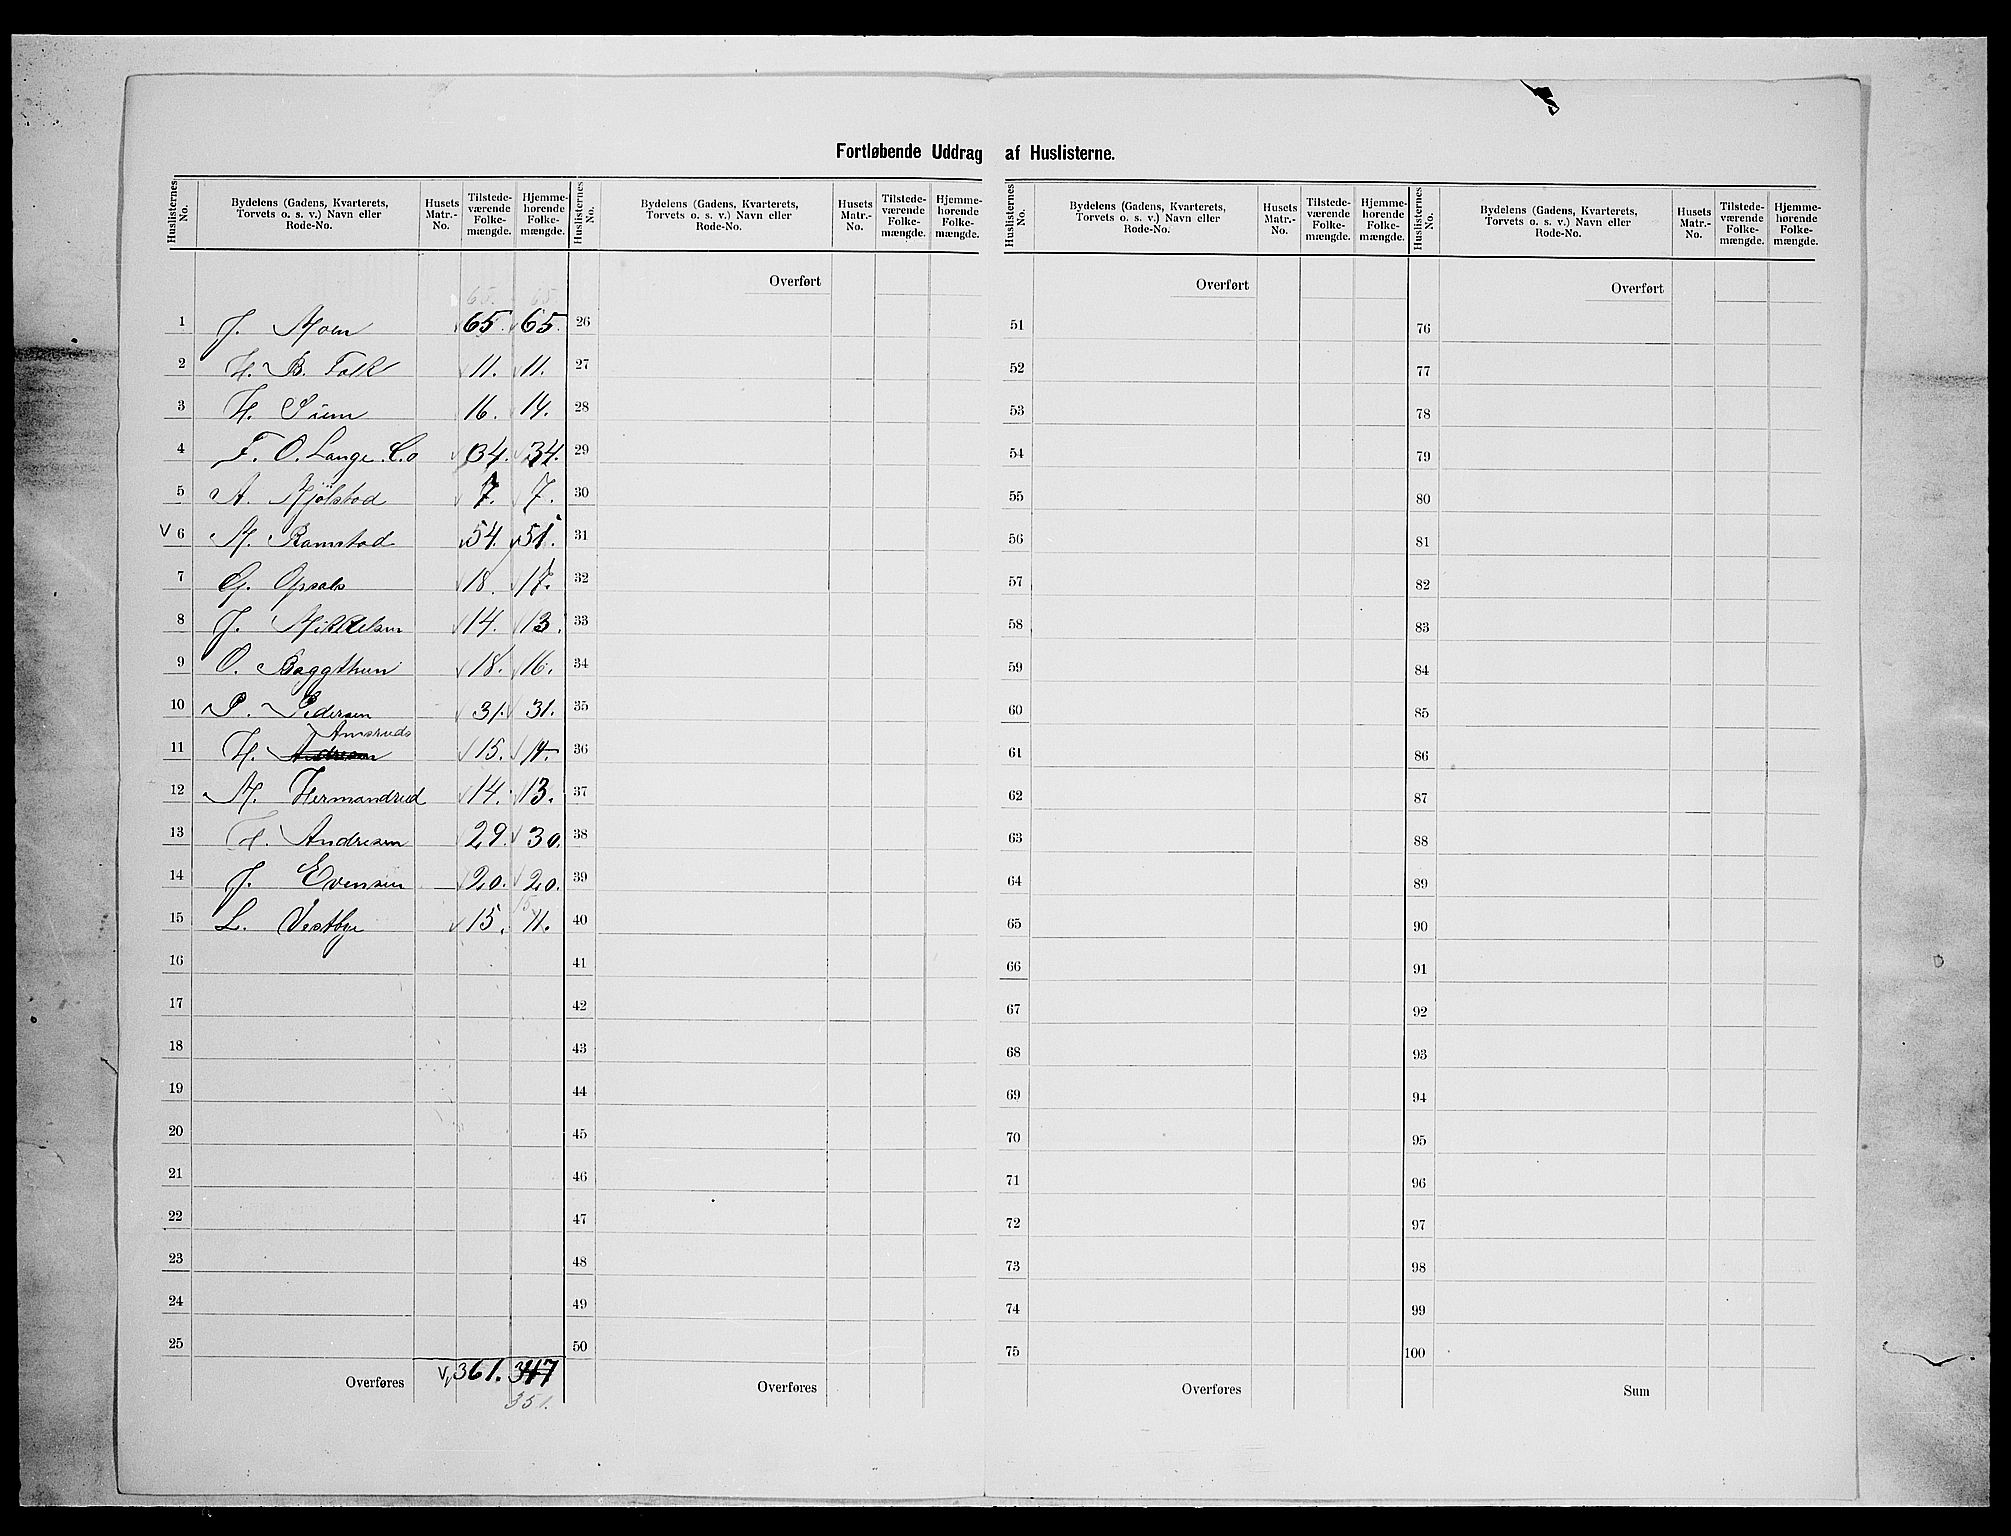 Fortløbende Uddrag af Huslisterne.
Huslisternes No. Bydelens (Gadens, Kvarterets, Torvets o. s. v.) Navn eller Rode-No. Husets Matr.-No. Tilstedeværende Folkemængde. Hjemmehørende Folkemængde.
Huslisternes No. Bydelens (Gadens, Kvarterets, Torvets o. s. v.) Navn eller Rode-No. Husets Matr.-No. Tilstedeværende Folkemængde. Hjemmehørende Folkemængde.
Huslisternes No. Bydelens (Gadens, Kvarterets, Torvets o. s. v.) Navn eller Rode-No. Husets Matr.-No. Tilstedeværende Folkemængde. Hjemmehørende Folkemængde.
Huslisternes No. Bydelens (Gadens, Kvarterets, Torvets o. s. v.) Navn eller Rode-No. Husets Matr.-No. Tilstedeværende Folkemængde. Hjemmehørende Folkemængde.
65. 65.
1 J. Moen 65. 65.
2 H. B. Falk 11. 11.
3 H. 16. 14.
4 F. O. Lange. C.o 34. 34.
5 A. Mjölstad 7. 7.
V 6 M. Ramstad 54. 51.
7 G. Opsals 18. 17.
8 J. Mikkelsen 14. 13.
9 O. Baggthun 18. 16.
10 P. Pedersen 31. 31.
Amsruds
11 H. 15. 14.
12 M. Hermandrud 14. 13.
13 H. Andresen 29. 30.
14 J. Evensen 20. 20.
15
15 L. Vestbye 15. 11.
16
17
18
19
20
21
22
23
24
25
Overføres V 361. 347
351.
Overført
26
27
28
29
30
31
32
33
34
35
36
37
38
39
40
41
42
43
44
45
46
47
48
49
50
Overføres
Overført
51
52
53
54
55
56
57
58
59
60
61
62
63
64
65
66
67
68
69
70
71
72
73
74
75
Overføres
Overført
76
77
78
79
80
81
82
83
84
85
86
87
88
89
90
91
92
93
94
95
96
97
98
99
100
Sum